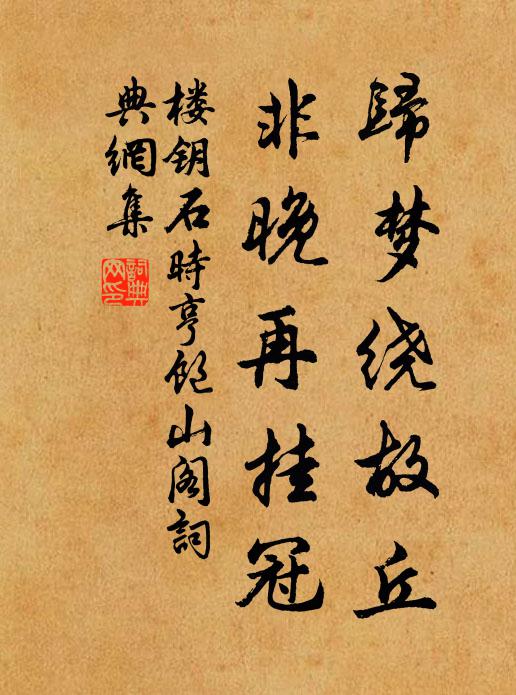 歸梦绕故丘
非晚再挂冠
楼钥石時亨飽山阁詞
典網集
詞典网印